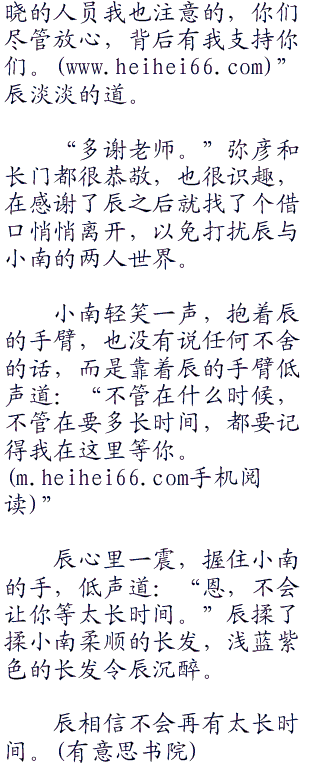 晓的人员我也注意的，你们
尽管放心，背后有我支持你
们。(www.heihei66.com)”
辰淡淡的道。
“多谢老师。”弥彦和
长门都很恭敬，也很识趣，
在感谢了辰之后就找了个借
口悄悄离开，以免打扰辰与
小南的两人世界。
小南轻笑一声，抱着辰
的手臂，也没有说任何不舍
的话，而是靠着辰的手臂低
声道：“不管在什么时候，
不管在要多长时间，都要记
得我在这里等你。
(m.heihei66.com手机阅
读)”
辰心里一震，握住小南
的手，低声道：“恩，不会
让你等太长时间。”辰揉了
揉小南柔顺的长发，浅蓝紫
色的长发令辰沉醉。
辰相信不会再有太长时
间。(有意思书院)